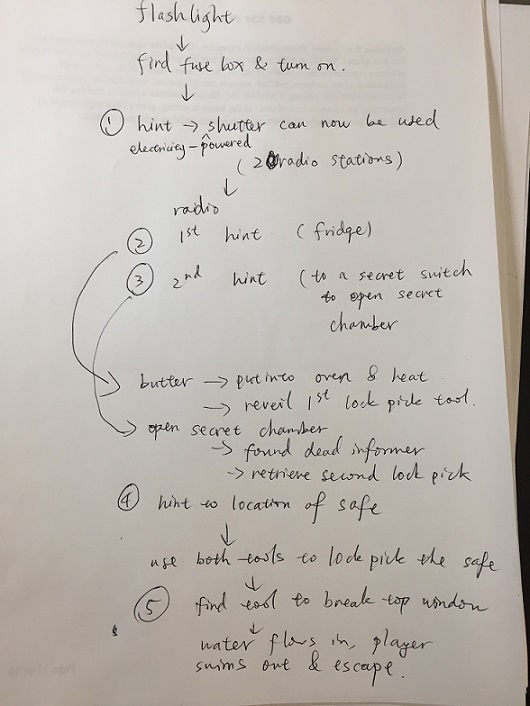 flashlight
↓
find fuse box & turn on.
↓
① hint → shutter can now be used
electricity-powered
(2 radio stations)
↓
radio
② 1st hint (fridge)
③ 2nd hint (to a secret switch
to open secret
chamber
butter → put into oven & heat
→ reveil 1st lock pick tool.
open secret chamber
→ found dead informer
→ retrieve second lock pick
④ hint to location of safe
↓
use both tools to lock pick the safe
↓
⑤ find tool to break top window
↓
water flows in, player
swims out & escape.